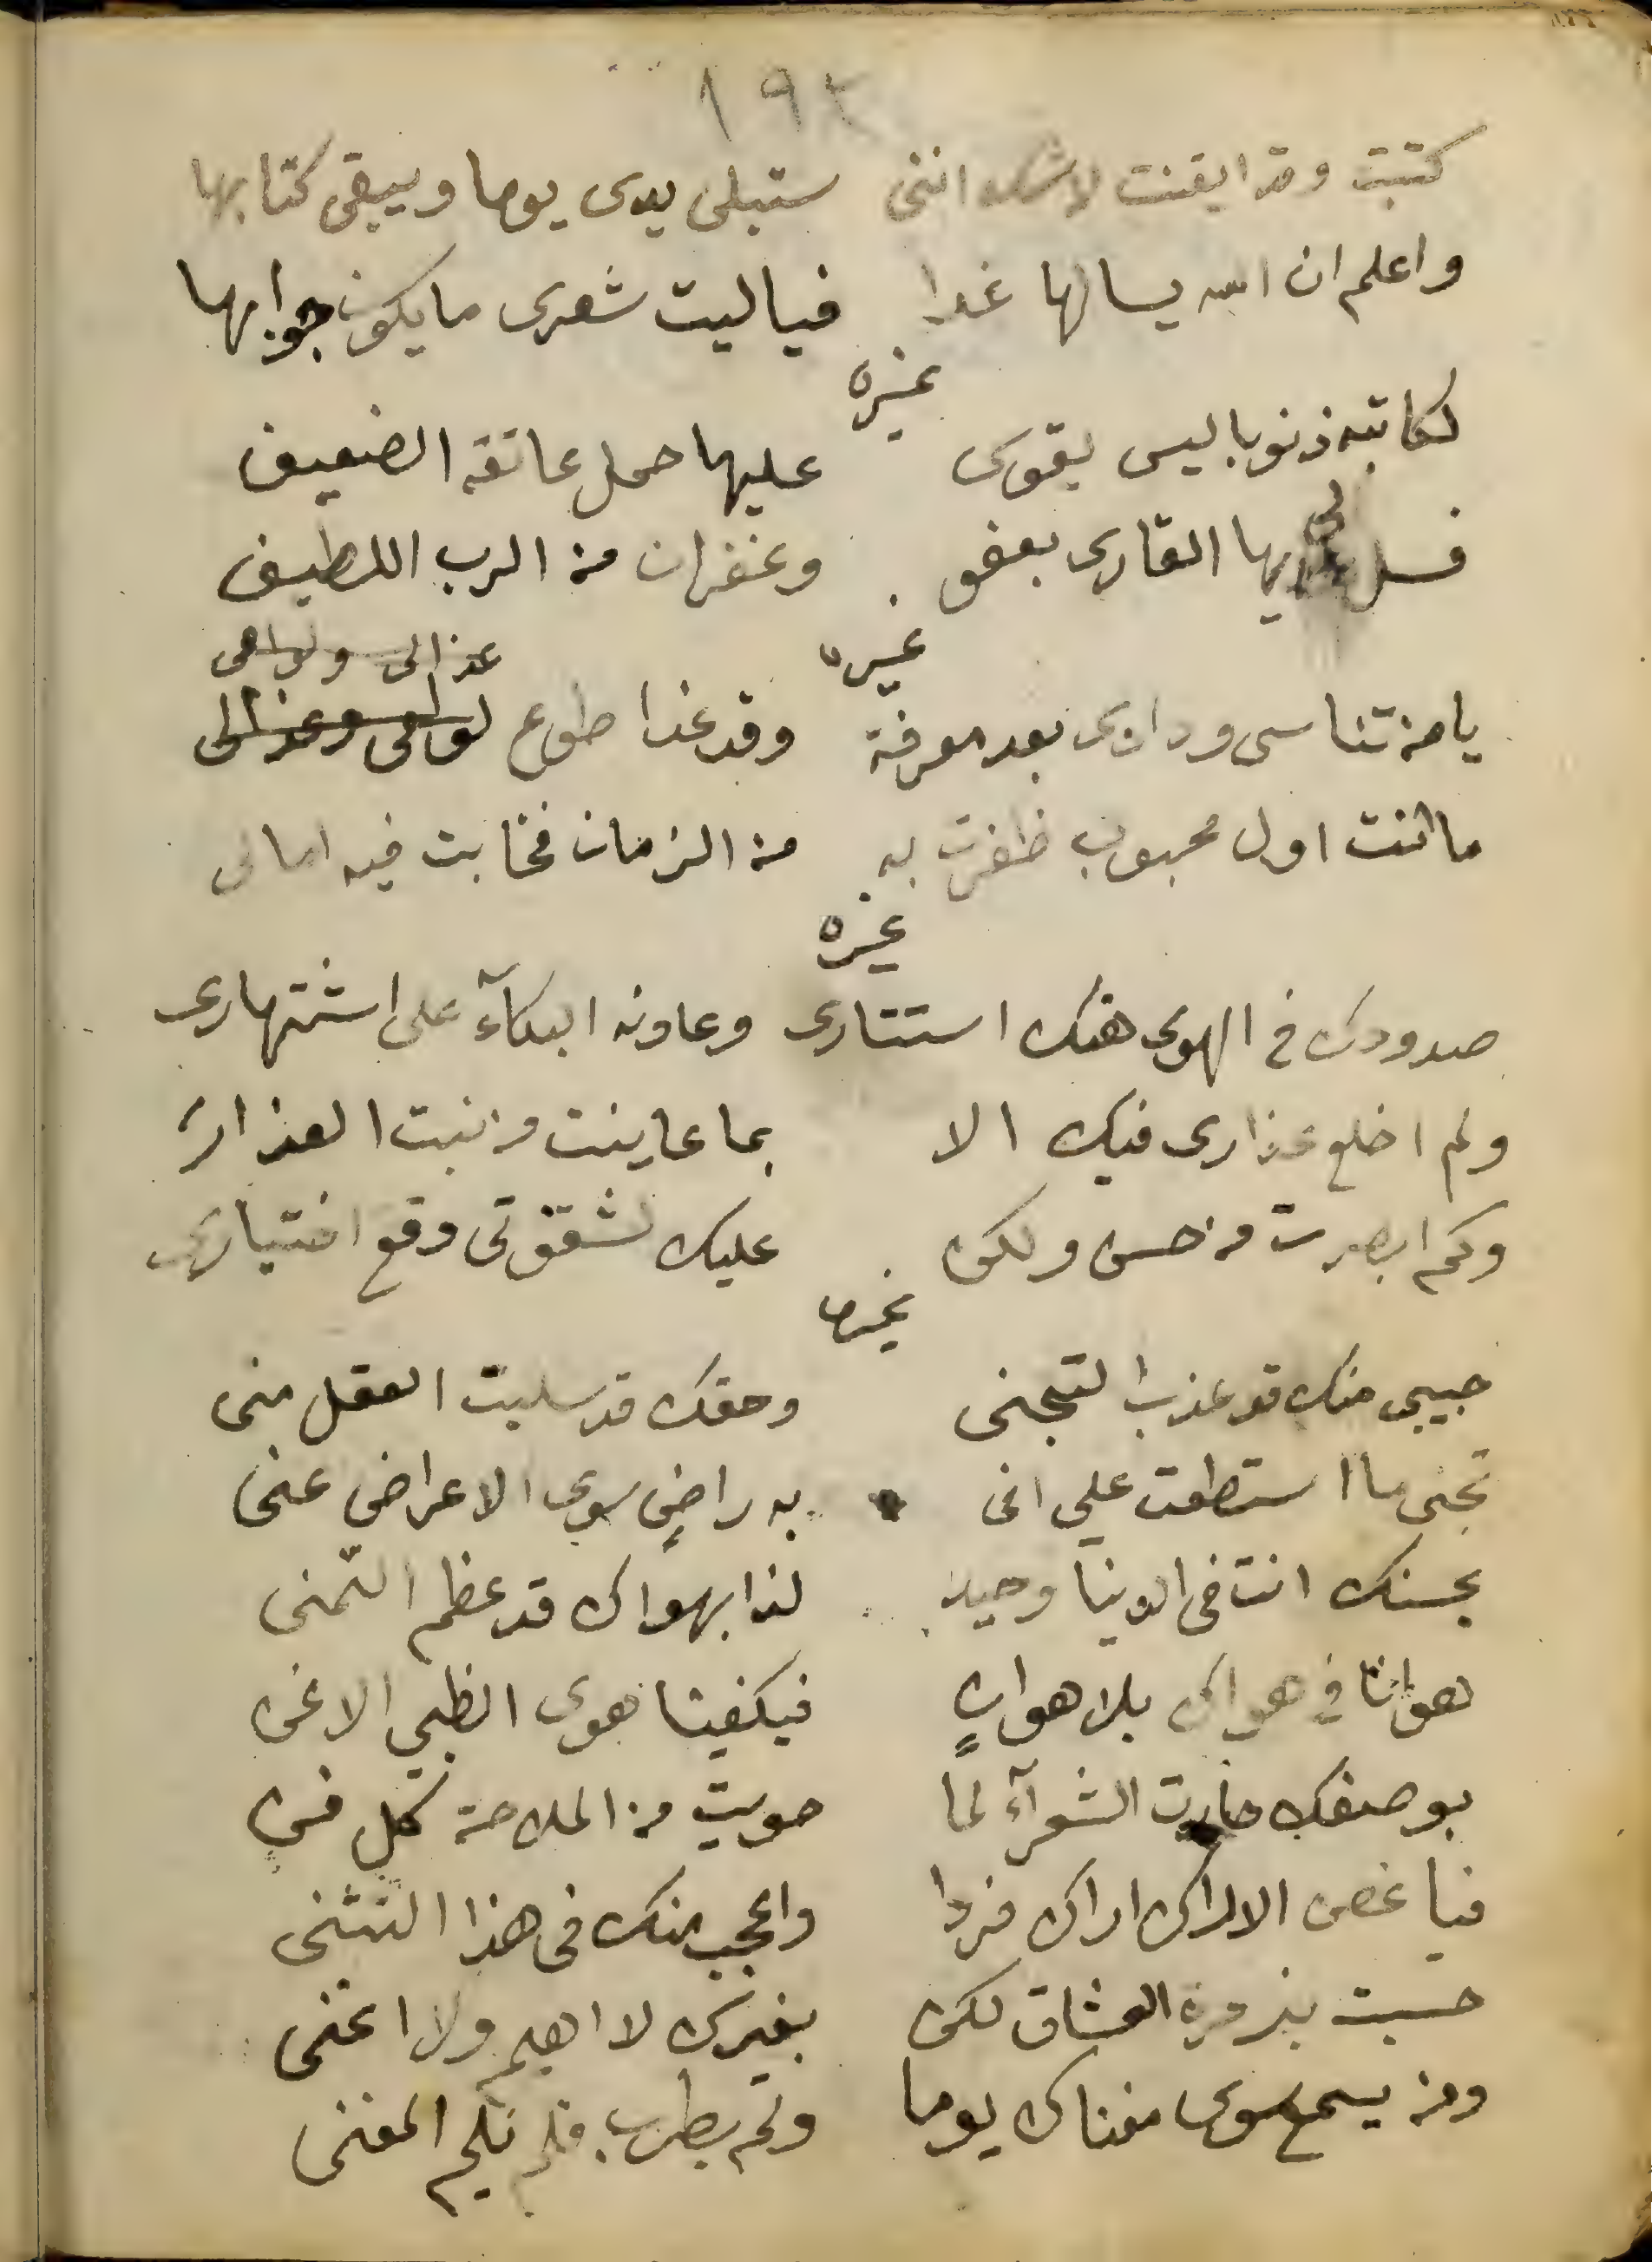 ١٩٣
كتبت وقد ايقنت لاشك انني ستبلى يدى يوما ويبقى كتابها
واعلم ان الله يسالها غدا فياليت شعرى ما يكون جوابها
غيره
لكاتبه ذنوبا ليس يقوى عليها حمل عاتقه الضعيف
فسل لي ايها القارى بعفو وغفران من الرب اللطيف
غيره
عذالى ولوامى
يا من تناسى ودادى بعد معرفة وقد غدا طوع لوامى وعذالى
ما كنت اول محبوب ظفرت به من الزمان فخابت فيه امالى
غيره
صدودك في الهوى هتك استتارى وعاونه البكآء على اشتهارى
ولم اخلع عذارى فيك الا بما عاينت من نبت العذار
وكم ابصرت من حسن ولكن عليك لشقوتى وقع اختيارى
غيرها
حبيبى منك قد عذب التجنى وحقك قد سلبت العقل منى
تجنى ما استطعت علي انى به راضٍ سوى الاعراض عنى
بحسنك انت فى الدنيا وحيد لذا بهواك قد عظم التمنى
هواننا في هواك بلا هوانٍ فيكفينا هوى الظبي الاغن
بوصفك حارت الشعرآء لما حويت من الملاحة كل فن
فيا غصن الاراك اراك فردا واعجب منك فى هذا التثنى
حسبت بزمرة العشاق لكن بغيرك لا اهيم ولا اغنى
ومن يسمع سوى مغناك يوما ولم يطرب فلم المغنى